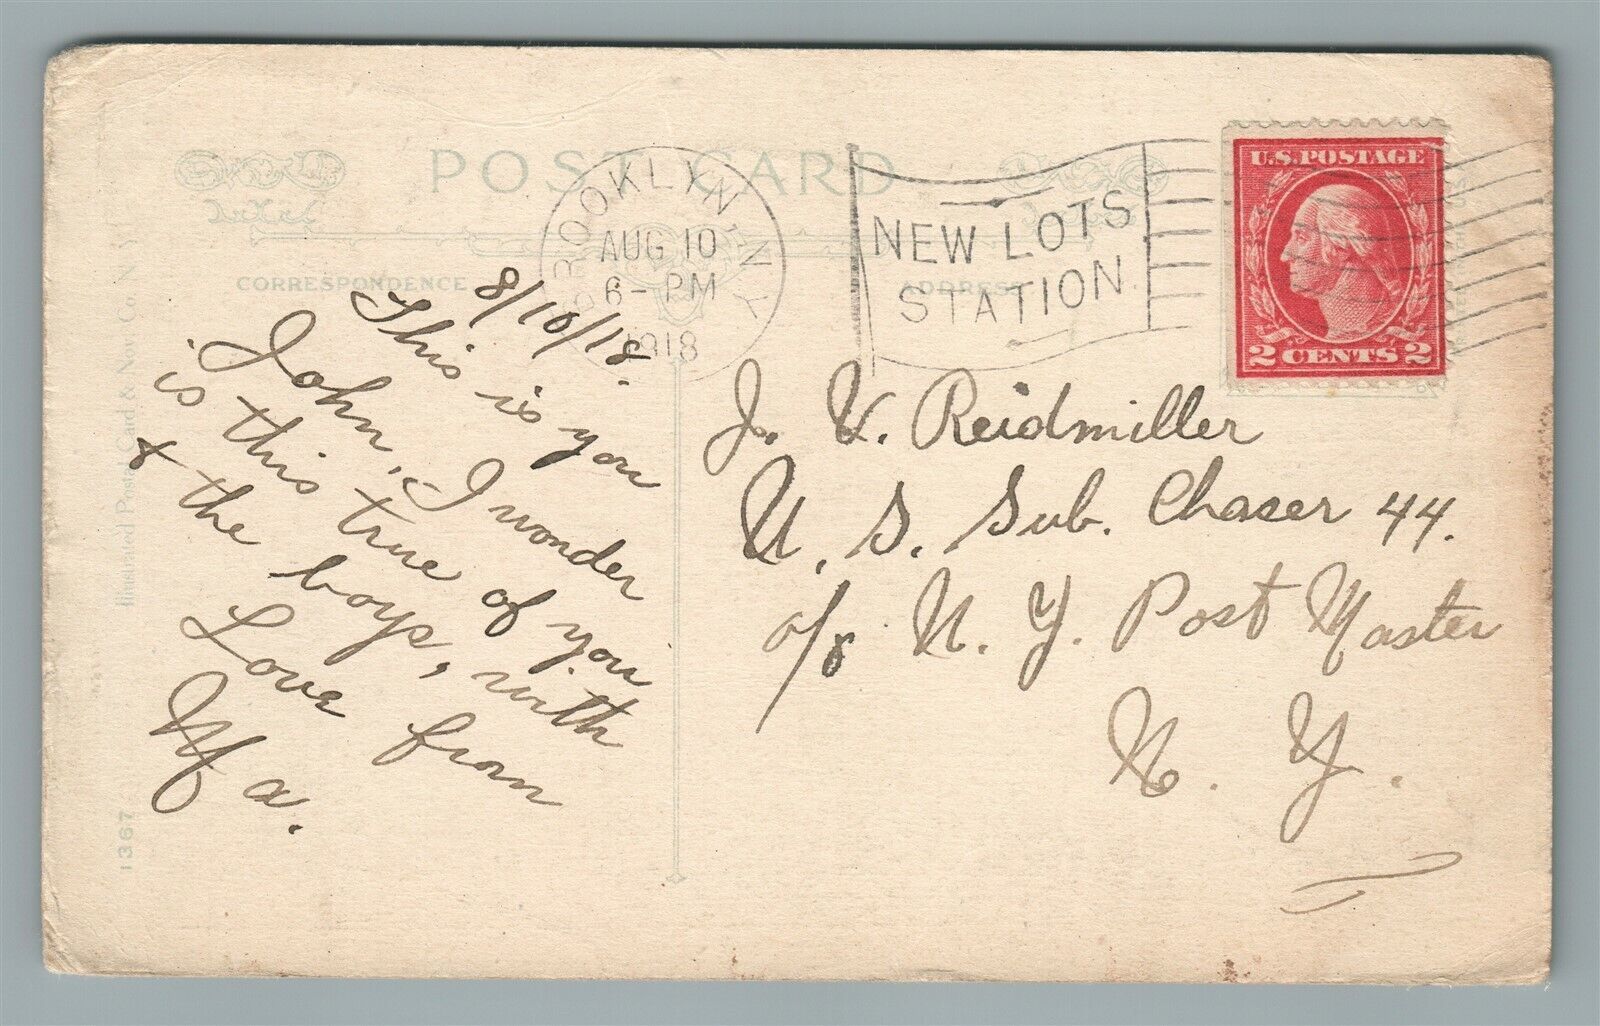 POST CARD
CORRESPONDENCE
ADDRESS
BROOKLYN N.Y.
AUG 10
6-PM
1918
NEW LOTS
STATION
U.S. POSTAGE
2 CENTS 2
8/10/18.
This is you
John, I wonder
is this true of you
& the boys, with
Love from
Ma.
J. V. Reidmiller
U. S. Sub. Chaser 44.
c/o N. Y. Post Master
N. Y.
Illustrated Postal Card & Nov. Co. N.Y.
1367